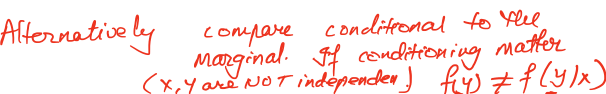 Alternatively compare conditional to the
marginal. If conditioning matter
(x, y are NOT independen) f(y) ≠ f(y|x)